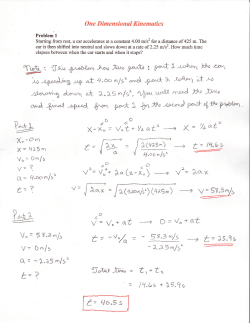 One Dimensional Kinematics
Problem 1
Starting from rest, a car accelerates at a constant 4.00 m/s² for a distance of 425 m. The
car is then shifted into neutral and slows down at a rate of 2.25 m/s². How much time
elapses between when the car starts and when it stops?
Note: This problem has two parts: part 1 when the car
is speeding up at 4.00 m/s² and part 2 when it is
slowing down at 2.25 m/s². You will need the time
and final speed from part 1 for the second part of the problem.
Part 1
X₀ = 0m
X = 425m
V₀ = 0m/s
V = ?
a = 4.00m/s²
t = ?
X - X₀ = V₀t + ½at² → X = ½at²
t = √(2x/a) = √(2(425m)/4.00m/s²) → t = 14.6s
V² = V₀² + 2a(x-x₀) → V² = 2ax
V = √(2ax) = √(2(4.00m/s²)(425m)) → V = 58.3m/s
Part 2
V₀ = 58.3m/s
V = 0m/s
a = -2.25m/s²
t = ?
V = V₀ + at → 0 = V₀ + at
t = -V₀/a = - 58.3m/s / -2.25m/s² → t = 25.9s
Total time = t₁ + t₂
= 14.6s + 25.9s
t = 40.5s